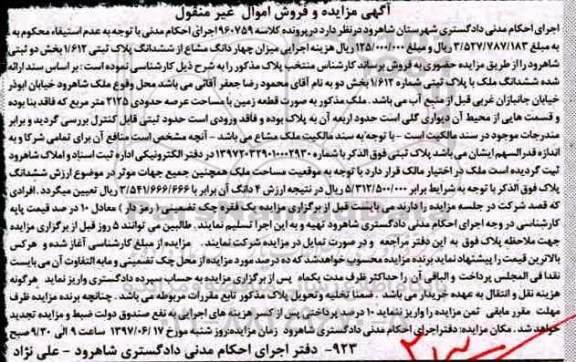 آگهی مزایده و فروش اموال غیر منقول
اجرای احکام مدنی دادگستری شهرستان شاهرود در نظر دارد در پرونده کلاسه ۹۶۰۷۵۹ اجرای احکام مدنی با توجه به عدم استیفاء محکوم به
به مبلغ ۳/۵۲۷/۷۸۷/۱۸۳ ریال و مبلغ ۱۲۵/۰۰۰/۰۰۰ ریال هزینه اجرایی میزان چهار دانگ مشاع از ششدانگ پلاک ثبتی ۱/۶۱۲ بخش دو ثبتی
شاهرود را از طریق مزایده حضوری به فروش برساند کارشناس منتخب پلاک مذکور را به شرح ذیل کارشناسی نموده است: بر اساس سند ارائه
شده ششدانگ ملک با پلاک ثبتی شماره ۱/۶۱۲ بخش دو به نام آقای محمود رضا جعفر آقائی می باشد محل وقوع ملک شاهرود خیابان ابوذر
خیابان جانبازان غربی قبل از منبع آب می باشد. ملک مذکور به صورت قطعه زمین با مساحت عرصه حدودی ۲۱۲۵ متر مربع که فاقد بنا بوده
و قسمت هایی از محیط آن دیواری گلی است حدود اربعه آن به پلاک بوده و فاقد ورودی است حدود ثبتی قابل کنترل بررسی گردید و برابر
مندرجات موجود در سند مالکیت است - با توجه به سند مالکیت ملک مشاع می باشد - آنچه مشخص است منافع آن برای تمامی شرکا و به
اندازه قدرالسهم ایشان می باشد پلاک ثبتی فوق الذکر با شماره ۱۳۹۷۲۰۳۲۹۰۱۰۰۰۲۹۳۰ در دفتر الکترونیکی اداره ثبت اسناد و املاک شاهرود
ثبت گردیده است ملک در اختیار مالک قرار دارد با توجه به موقعیت مساحت ملک همچنین جمیع جهات موثر در موضوع ارزش ششدانگ
پلاک فوق الذکر با توجه به شرایط برابر ۵/۳۱۲/۵۰۰/۰۰۰ ریال در نتیجه ارزش ۴ دانگ آن برابر با ۳/۵۴۱/۶۶۶/۶۶۶ ریال تعیین میگردد. افرادی
که قصد شرکت در جلسه مزایده را دارند می بایست قبل از برگزاری مزایده یک فقره چک تضمینی ( رمز دار ) معادل ۱۰ در صد قیمت پایه
کارشناسی در وجه اجرای احکام مدنی دادگستری شاهرود تهیه و به این اجرا تسلیم نمایند. طالبین می توانند ۵ روز قبل از برگزاری مزایده
جهت ملاحظه پلاک فوق به این دفتر مراجعه و در صورت تمایل در مزایده شرکت نمایند. مزایده از مبلغ کارشناسی آغاز شده و هرکس
بالاترین قیمت را پیشنهاد نماید برنده مزایده محسوب خواهد شد که ده درصد مورد مزایده از محل چک تضمینی و مابه التفاوت آن می بایست
نقدا فی المجلس پرداخت و الباقی آن را حداکثر ظرف مدت یکماه پس از برگزاری مزایده به حساب سپرده دادگستری واریز نماید هرگونه
هزینه نقل و انتقال به عهده خریدار می باشد. ضمنا تخلیه و تحویل پلاک مذکور تابع مقررات مربوطه می باشد. چنانچه برنده مزایده ظرف
مهلت مقرر مابقی ثمن مزایده را واریز ننماید ۱۰ درصد پرداختی پس از کسر هزینه های اجرایی به نفع صندوق دولت ضبط و مزایده تجدید
خواهد شد. مکان مزایده: دفتر اجرای احکام مدنی دادگستری شاهرود زمان مزایده: روز شنبه مورخ ۱۳۹۷/۰۶/۱۷ ساعت ۹ الی ۹/۳۰ صبح
۹۲۳- دفتر اجرای احکام مدنی دادگستری شاهرود - علی نژاد